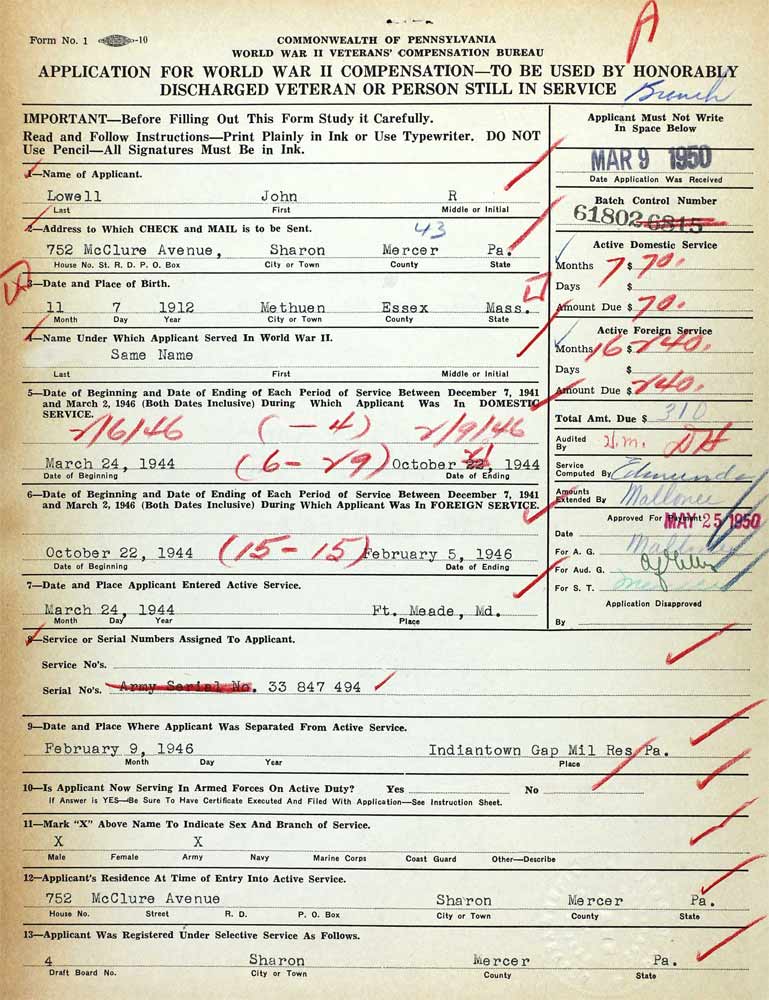 A
Form No. 1 -10
COMMONWEALTH OF PENNSYLVANIA
WORLD WAR II VETERANS' COMPENSATION BUREAU
APPLICATION FOR WORLD WAR II COMPENSATION—TO BE USED BY HONORABLY
DISCHARGED VETERAN OR PERSON STILL IN SERVICE
IMPORTANT—Before Filling Out This Form Study it Carefully.
Read and Follow Instructions—Print Plainly in Ink or Use Typewriter. DO NOT
Use Pencil—All Signatures Must Be in Ink.
1—Name of Applicant.
Lowell John R
Last First Middle or Initial
2—Address to Which CHECK and MAIL is to be Sent. 43
752 McClure Avenue, Sharon Mercer Pa.
House No. St. R. D. P. O. Box City or Town County State
3—Date and Place of Birth.
11 7 1912 Methuen Essex Mass.
Month Day Year City or Town County State
4—Name Under Which Applicant Served In World War II.
Same Name
Last First Middle or Initial
5—Date of Beginning and Date of Ending of Each Period of Service Between December 7, 1941
and March 2, 1946 (Both Dates Inclusive) During Which Applicant Was In DOMESTIC
SERVICE.
2/6/46 (— 4) 2/9/46
March 24, 1944 (6 - 29) October 22, 21 1944
Date of Beginning Date of Ending
6—Date of Beginning and Date of Ending of Each Period of Service Between December 7, 1941
and March 2, 1946 (Both Dates Inclusive) During Which Applicant Was In FOREIGN SERVICE.
October 22, 1944 (15 - 15) February 5, 1946
Date of Beginning Date of Ending
7—Date and Place Applicant Entered Active Service.
March 24, 1944 Ft. Meade, Md.
Month Day Year Place
8—Service or Serial Numbers Assigned To Applicant.
Service No's.
Serial No's. Army Serial No. 33 847 494
9—Date and Place Where Applicant Was Separated From Active Service.
February 9, 1946 Indiantown Gap Mil Res Pa.
Month Day Year Place
10—Is Applicant Now Serving In Armed Forces On Active Duty? Yes No
If Answer is YES—Be Sure To Have Certificate Executed And Filed With Application—See Instruction Sheet.
11—Mark "X" Above Name To Indicate Sex And Branch of Service.
X X
Male Female Army Navy Marine Corps Coast Guard Other—Describe
12—Applicant's Residence At Time of Entry Into Active Service.
752 McClure Avenue Sharon Mercer Pa.
House No. Street R. D. P. O. Box City or Town County State
13—Applicant Was Registered Under Selective Service As Follows.
4 Sharon Mercer Pa.
Draft Board No. City or Town County State
Applicant Must Not Write
In Space Below
MAR 9 1950
Date Application Was Received
Batch Control Number
61802 6815
Active Domestic Service
Months 7 $ 70.
Days $
Amount Due $ 70.
Active Foreign Service
Months 16 $ 240.
Days $
Amount Due $ 240.
Total Amt. Due $ 310
Audited
By H.m. DH
Service
Computed By Edmunds
Amounts
Extended By Mallonee
Approved For Payment
MAY 25 1950
Date
For A. G.
For Aud. G.
For S. T.
Application Disapproved
By